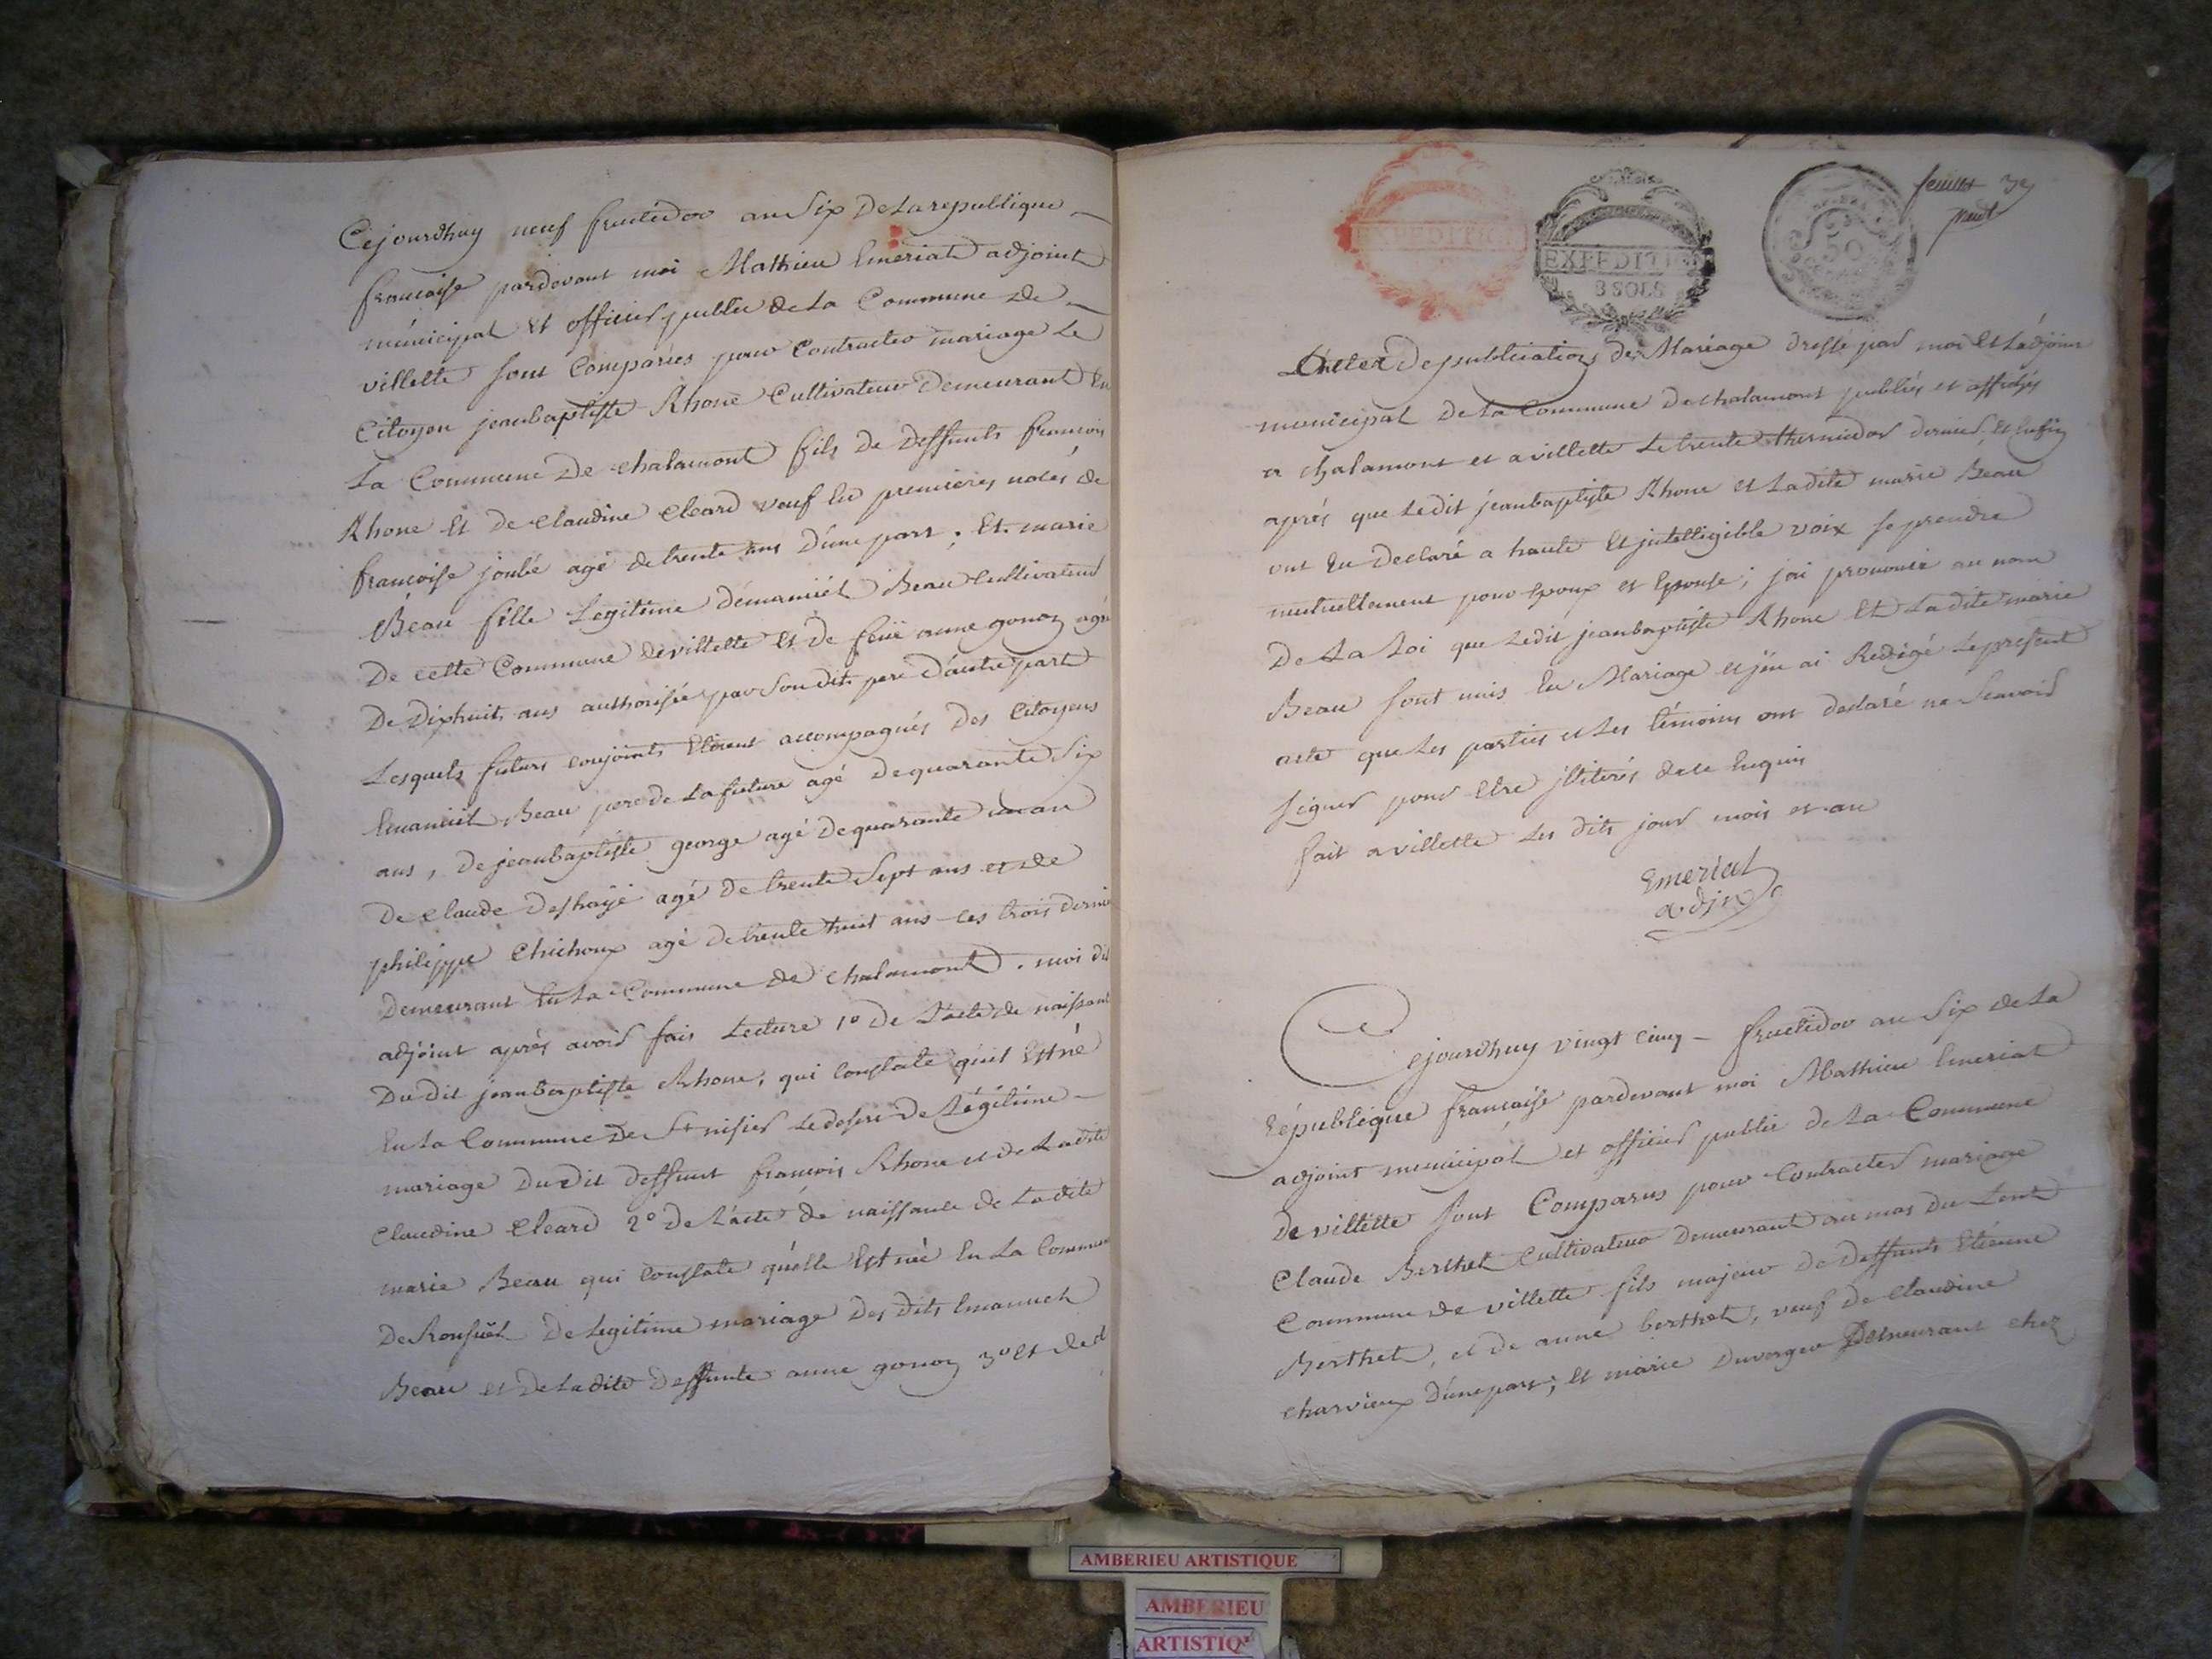 Cejourdhuy neuf fructidor an Six De La republique
francaise pardevant moi Mathieu Emeriat adjoint
municipal et officier public de La Commune de
villette sont Comparües pour Contracter mariage Le
Citoyen jeanbaptiste Rhone Cultivateur Demeurant En
La Commune De chalamont fils de deffunts francois
Rhone Et de Claudine Cleard veuf En premieres noces de
francoise joubé agé de trente ans D'une part; Et marie
Beau fille Legitime d'emanuel Beau Cultivateur
De cette Commune de villette Et De feüe anne gonoz agée
De Dixhuit ans authorisée par Son dit pere D'autre part
Lesquels futurs conjoints Etoient accompagnés Des Citoyens
Emanuel Beau pere de La future agé De quarante Six
ans, De jeanbaptiste george agé De quarante un an
De Claude Deshaye agé de trente Sept ans et de
philippe Chichoux agé de trente huit ans Les trois Dernie
Demeurant En La Commune de chalamont. moi dit
adjoint aprés avoir fais Lecture 1º De L'acte de naissanc
Du dit jeanbaptiste Rhone, qui constate qu'il Est né
En La Commune De St nisier Le de Légitime
mariage Du dit deffunt francois Rhone et de Ladite
Claudine Cleard 2º De L'acte de naissance de Ladite
marie Beau qui constate qu'elle Est née En La Commune
De Ronsuel De Legitime mariage Des dits Emanuel
Beau et De Ladite Deffunte anne gonoz 3º Et de
EXPEDITION
EXPEDITI
3 SOLS
50
feuillet
L'acte De publication de Mariage dressé par moi Et L'adjoint
municipal De La Commune De chalamont publiés et affichés
a chalamont et a villette Le trente thermidor dernier, Et Enfin
aprés que Ledit jeanbaptiste Rhone et Ladite marie Beau
ont Eu Declaré a haute Et jntelligible voix se prendre
mutuellement pour Epoux et Epouse; j'ai prononcé au nom
De La Loi que Ledit jeanbaptiste Rhone Et Ladite marie
Beau sont unis En Mariage et j'en ai Redigé Le present
acte que Les parties et Les témoins ont declaré ne Scavoir
Signer pour Etre jlliterés de ce Enquis
fait a villette Les dits jour mois et an
Emeriat
adjt
Cejourdhuy vingt cinq - fructidor an Six de La
République francaise pardevant moi Mathieu Emeriat
adjoint municipal et officier public de La Commune
De villette Sont Comparus pour Contracter mariage
Claude Berthet Cultivateur Demeurant au mas Du Lent
Commune de villette fils majeur de Deffunts Etienne
Berthet, et de anne berthet, veuf de Claudine
Charvieux D'une part; Et marie Duverger Demeurant chez
AMBERIEU ARTISTIQUE
AMBERIEU
ARTISTIQ